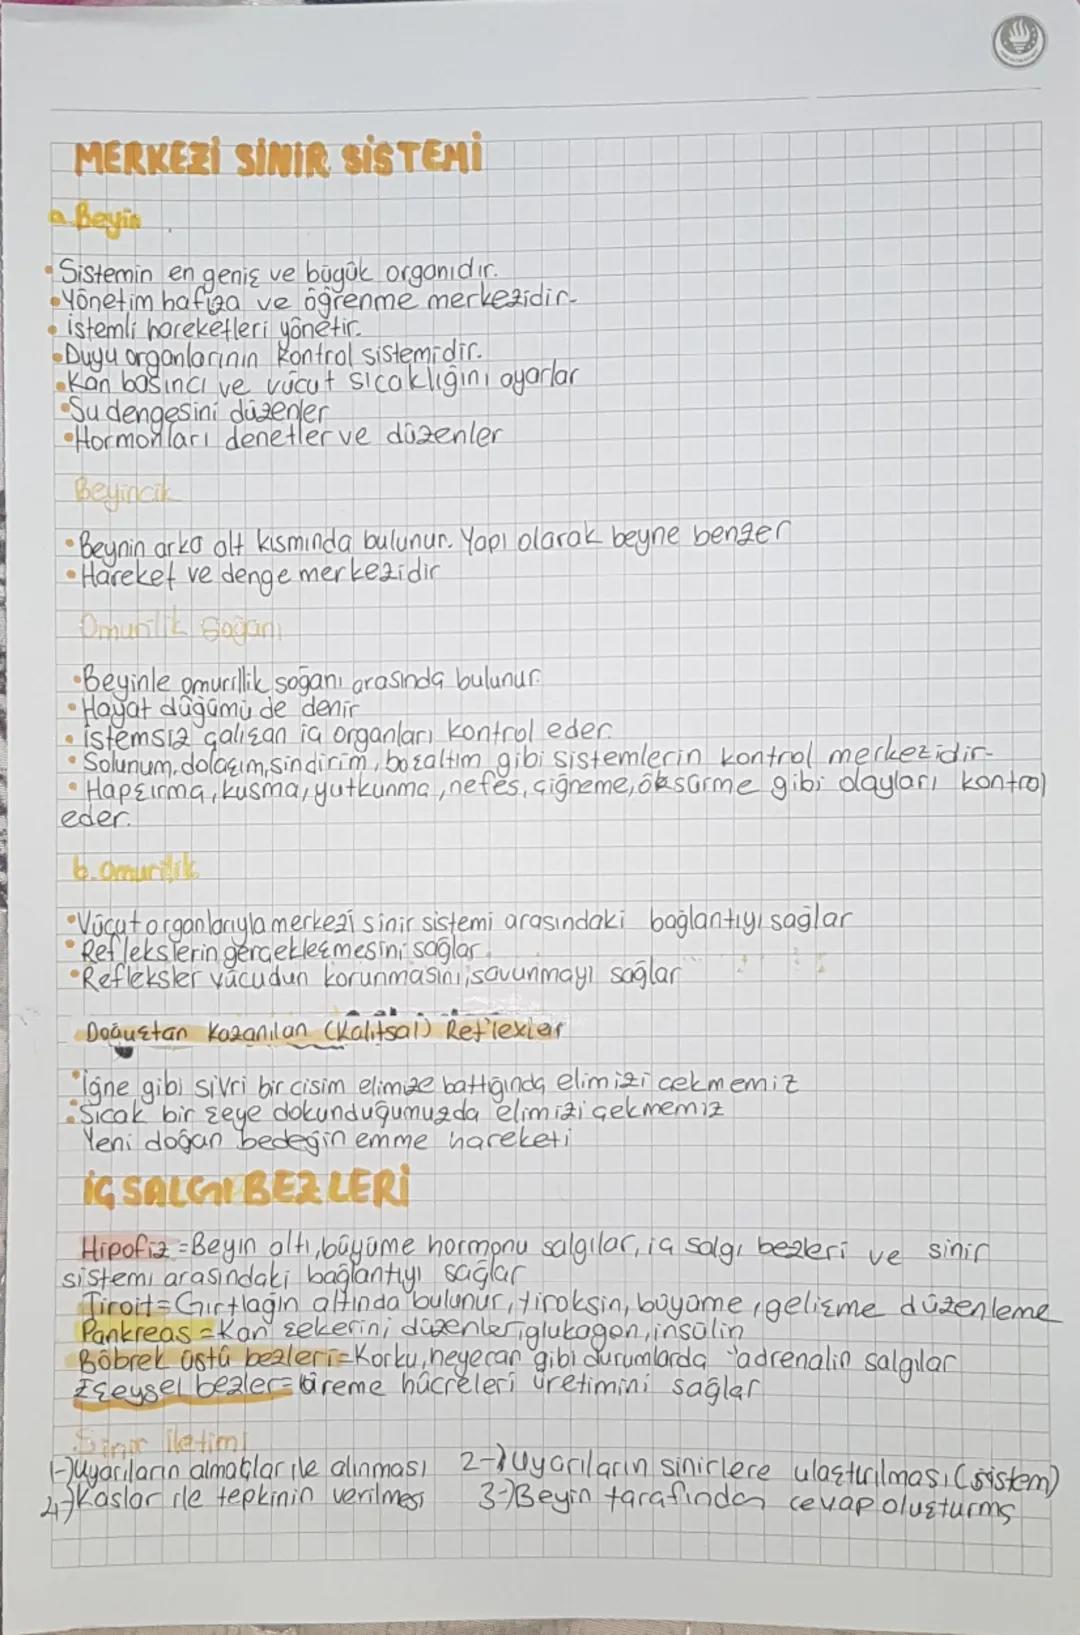 MERKEZİ SİNİR SİSTEMİ
a. Beyin
• Sistemin en geniş ve büyük organıdır.
• Yönetim hafıza ve öğrenme merkezidir.
• istemli hareketleri yönetir.
• Duyu organlarının kontrol sistemidir.
• Kan basıncı ve vücut sıcaklığını ayarlar
• Su dengesini düzenler
• Hormonları denetler ve düzenler
Beyincik
• Beynin arka alt kısmında bulunur. Yapı olarak beyne benzer
• Hareket ve denge merkezidir
Omurilik Soğanı
• Beyinle omurillik soğanı arasında bulunur.
• Hayat düğümü de denir
• İstemsiz çalışan iç organları kontrol eder.
• Solunum, dolaşım, sindirim, boşaltım gibi sistemlerin kontrol merkezidir.
• Hapşırma, kusma, yutkunma, nefes, çiğneme, öksürme gibi olayları kontrol
eder.
b. Omurilik
• Vücut organlarıyla merkezi sinir sistemi arasındaki bağlantıyı sağlar
• Reflekslerin gerçekleşmesini sağlar.
• Refleksler vücudun korunmasını, savunmayı sağlar
Doğuştan Kazanılan (Kalıtsal) Reflexler
• İğne gibi sivri bir cisim elimize battığında elimizi çekmemiz
• Sıcak bir şeye dokunduğumuzda elimizi çekmemiz
Yeni doğan bebeğin emme hareketi
İÇ SALGI BEZLERİ
Hipofiz = Beyin altı, büyüme hormonu salgılar, iç salgı bezleri ve sinir
sistemi arasındaki bağlantıyı sağlar
Tiroit = Gırtlağın altında bulunur, tiroksin, büyüme, gelişme düzenleme
Pankreas = Kan şekerini düzenler, glukagon, insülin
Böbrek üstü bezleri = Korku, heyecan gibi durumlarda "adrenalin salgılar
Eşeysel bezler = üreme hücreleri üretimini sağlar
Sinir iletimi
1-) Uyarıların almaçlar ile alınması 2-) Uyarıların sinirlere ulaştırılması (sistem)
4-) Kaslar ile tepkinin verilmesi 3-) Beyin tarafından cevap oluşturma